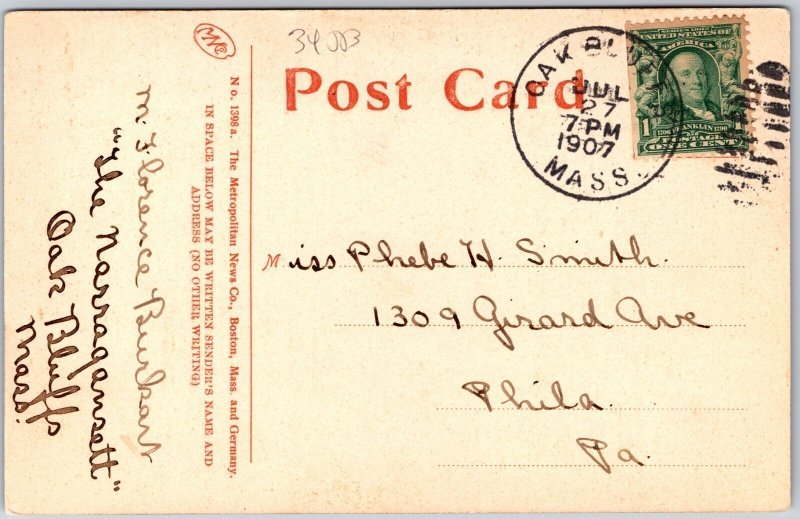 MNCo
34
Post Card
OAK BLUFFS
JUL
27
7 PM
1907
MASS.
SERIES 1902
UNITED STATES OF
AMERICA
1 1706 FRANKLIN 1790 1
POSTAGE
ONE CENT
No. 1398a. The Metropolitan News Co., Boston, Mass. and Germany.
IN SPACE BELOW MAY BE WRITTEN SENDER'S NAME AND
ADDRESS (NO OTHER WRITING)
M. Florence Burkart
"The Narragansett"
Oak Bluffs
Mass.
Miss Phebe H. Smith.
1309 Girard Ave
Phila.
Pa.